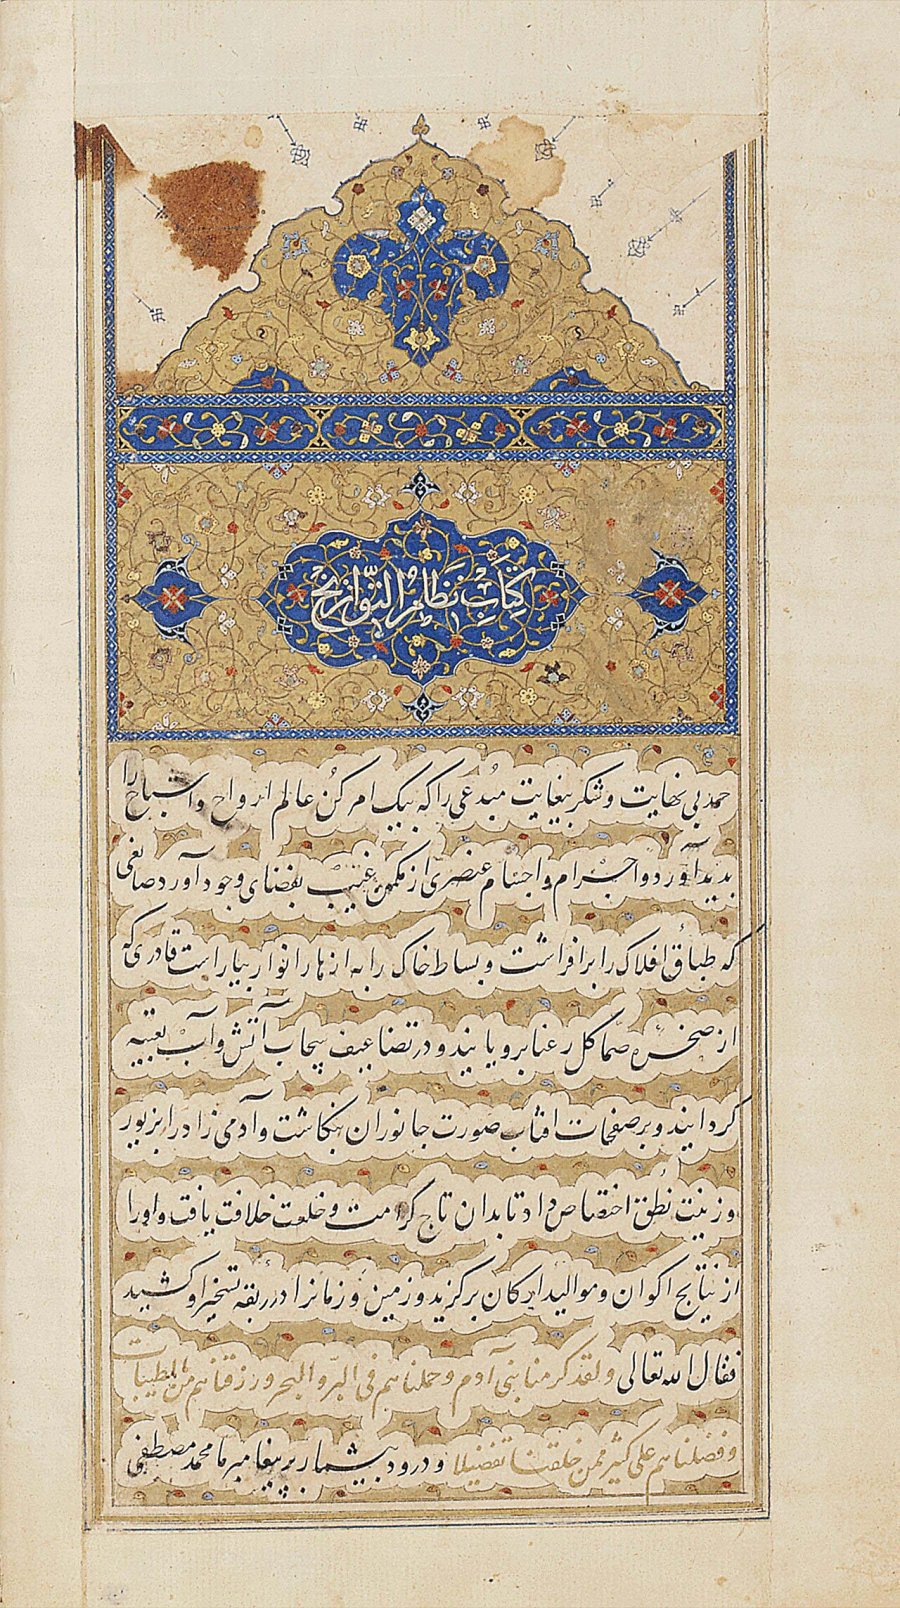 کتاب نظام التواریخ
حمد بی نهایت و شکر بیغایت مبدعی را که بیک امر کُن عالم ارواح و اشباح را
پدید آورد و اجرام و اجسام عنصری از مکمن غیب بفضای وجود آورد صانعی
که طباق افلاک را برافراشت و بساط خاک را به ازهار انوار بیاراست قادری که
از صخره صمّا گل رعنا برویانید و در تضاعیف سحاب آتش و آب تعبیه
گردانید و بر صفحات افتاب صورت جانوران بنگاشت و آدمی را در ابر زیور
و زینت نُطق اختصاص داد تا بدان تاج کرامت و خلعت خلافت یافت و او را
از نتایج اکوان و موالید ارکان برگزید و زمین و زمانرا در ربقه تسخیر او کشید
فقال الله تعالی ولقد کرمنا بنی آدم و حملناهم فی البرّ و البحر و رزقناهم من الطیبات
و فضلناهم علی کثیر ممن خلقنا تفضیلا و درود بیشمار بر پیغامبر ما محمد مصطفی